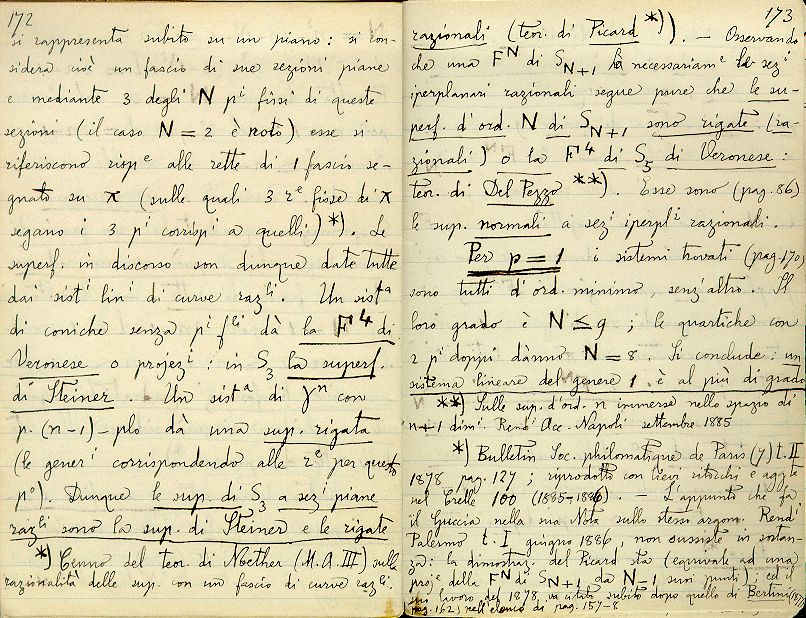 172
si rappresenta subito su un piano: si con-
sidera cioè un fascio di sue sezioni piane
e mediante 3 degli N pⁱ fissi di queste
sezioni (il caso N=2 è noto) esse si
riferiscono rispᵉ alle rette di 1 fascio se-
gnato su π (sulle quali 3 rᵉ fisse di π
segano i 3 pⁱ corrispⁱ a quelli)*). Le
superf. in discorso son dunque date tutte
dai sistⁱ linⁱ di curve razˡⁱ. Un sistᵃ
di coniche senza pⁱ fˡⁱ dà la F⁴ di
Veronese o projezⁱ: in S₃ la superf.
di Steiner. Un sistᵃ di γⁿ con
p. (n-1)-plo dà una sup. rigata
(le generⁱ corrispondendo alle rᵉ per questo
pᵒ). Dunque le sup. di S₃ a sezⁱ piane
razˡⁱ sono la sup. di Steiner e le rigate
*) Cenno del teor. di Noether (M.A. III) sulla
razionalità delle sup. con un fascio di curve razˡⁱ.
173
razionali (teor. di Picard*)). – Osservando
che una Fᴺ di S_N+1 ha necessariamᵉ le sezⁱ
iperplanari razionali segue pure che le su-
perf. d'ord. N di S_N+1 sono rigate (ra-
zionali) o la F⁴ di S₅ di Veronese:
teor. di Del Pezzo **). Esse sono (pag. 86)
le sup. normali a sezⁱ iperplⁱ razionali.
Per p=1 i sistemi trovati (pag. 170)
sono tutti d'ord. minimo, senz'altro. Il
loro grado è N ≤ 9; le quartiche con
2 pⁱ doppi dànno N=8. Si conclude: un
sistema lineare del genere 1 è al più di grado
**) Sulle sup. d'ord. n immerse nello spazio di
n+1 dimⁱ. Rendⁱ Acc. Napoli settembre 1885
*) Bulletin Soc. philomatique de Paris (7) t. II
1878 pag. 127; riprodotto con lievi ritocchi e aggᵗᵉ
nel Crelle 100 (1885-1886). – L'appunto che fa
il Guccia nella sua Nota sullo stesso argom. Rendⁱ
Palermo t. I giugno 1886, non sussiste in sostan-
za: la dimostraz. del Picard sta (equivale ad una
projᵉ della Fᴺ di S_N+1 da N-1 suoi punti); ed il
suo lavoro del 1878, va citato subito dopo quello di Bertini (1877
pag. 162) nell'elenco di pag. 157-8